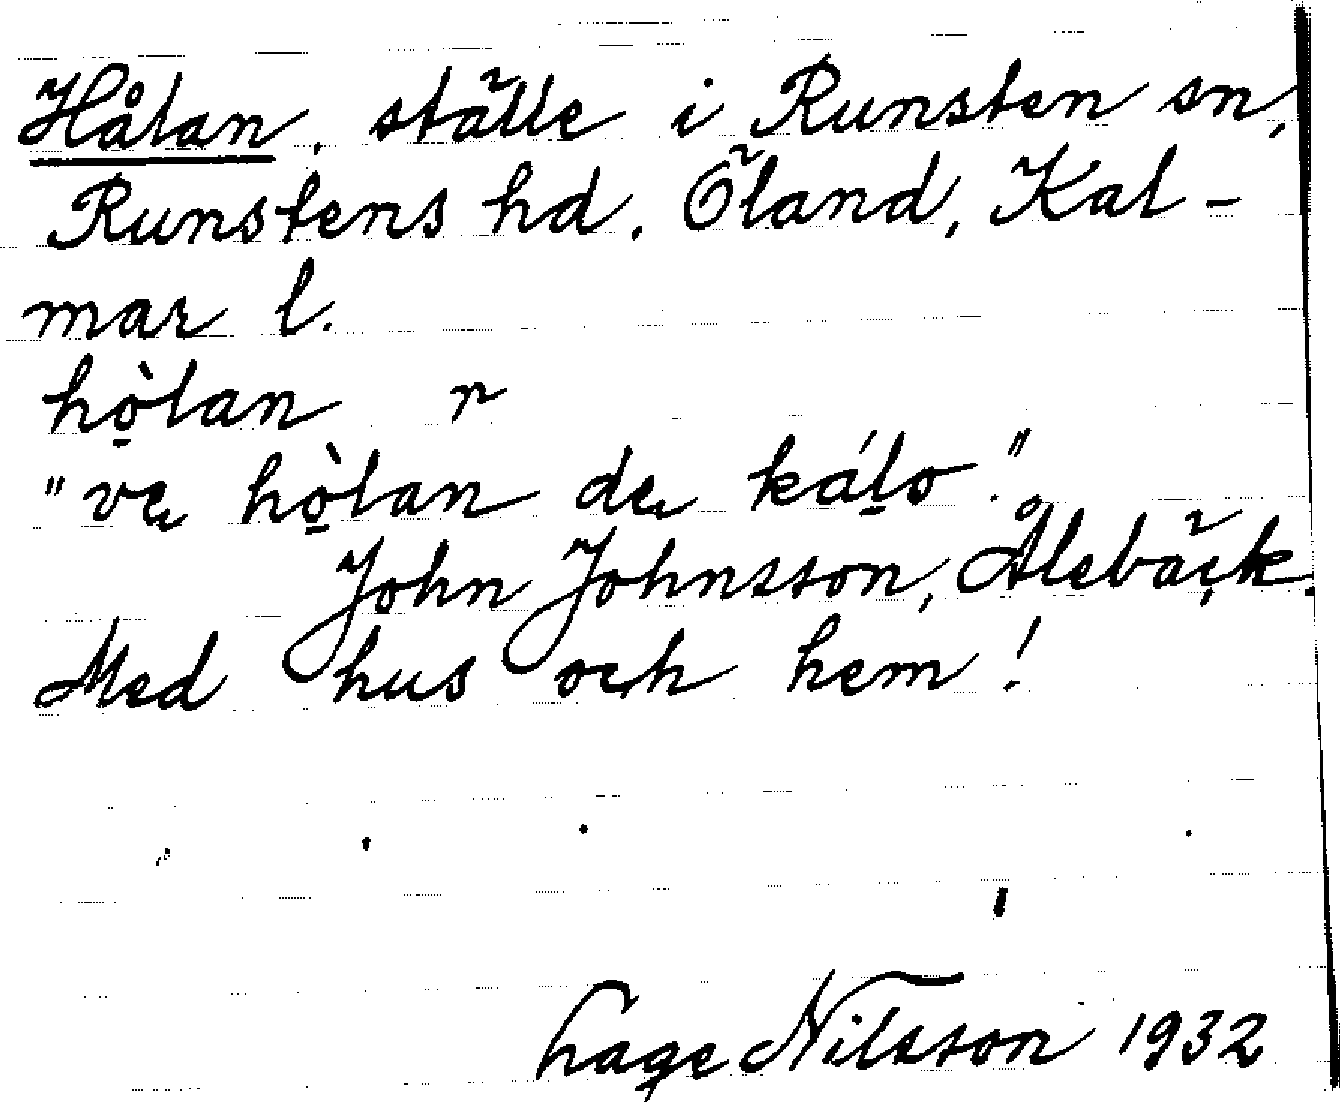 Hålan, ställe i Runsten sn,
Runstens hd. Öland, Kal-
mar l.
hò̱lan r
"ve hò̱lan de kálo̱."
John Johnsson, Ålebäck.
Med hus och hem!
Lage Nilsson 1932